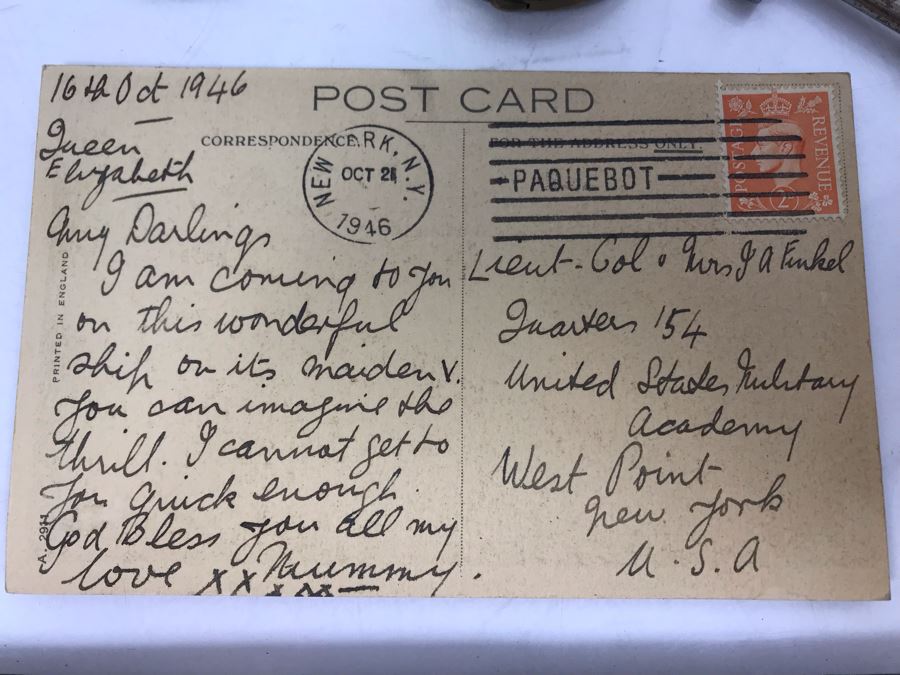 16th Oct 1946
POST CARD
Queen
Elizabeth
CORRESPONDENCE.
FOR THE ADDRESS ONLY.
NEW YORK, N.Y.
OCT 21
1946
PAQUEBOT
POSTAGE
REVENUE
2D
My Darlings
I am coming to you
on this wonderful
ship on its maiden v.
You can imagine the
thrill. I cannot get to
you quick enough
God Bless you all my
love xxxxx Mummy.
Lieut-Col & Mrs J A Finkel
Quarters 154
United States Military
Academy
West Point
New York
U.S.A
PRINTED IN ENGLAND